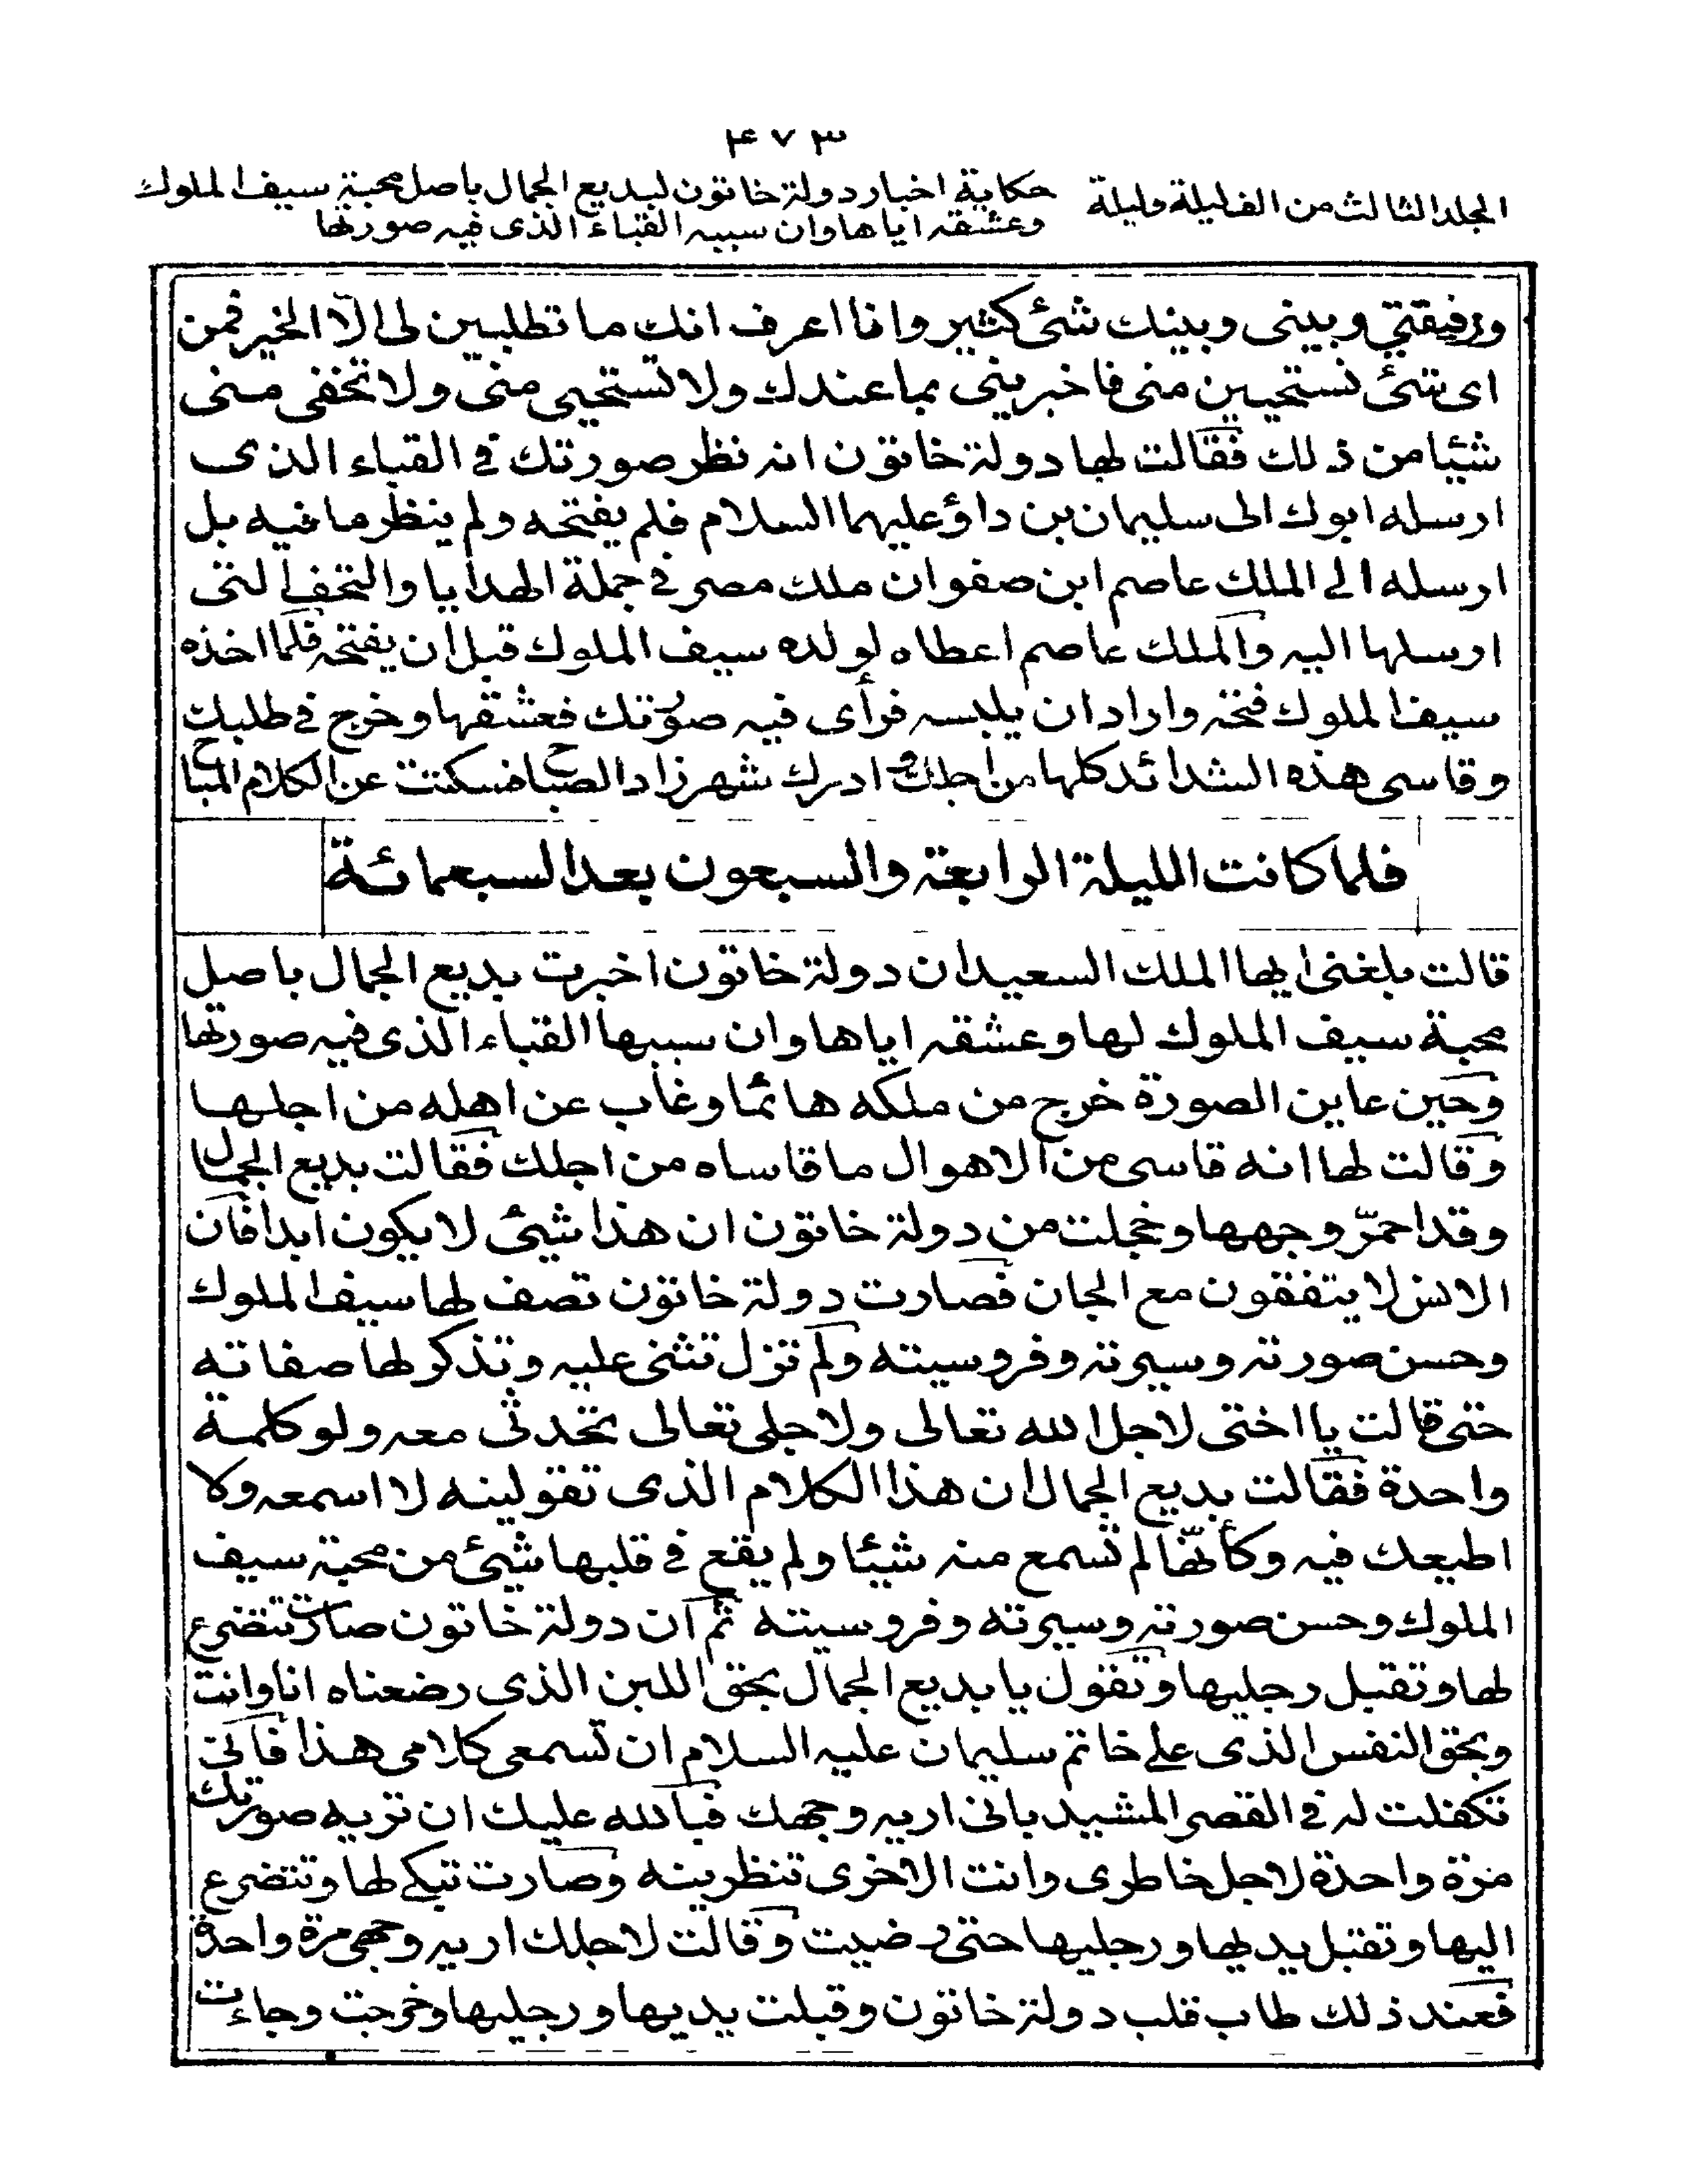 ۴۷۳
المجلد الثالث من الف ليلة وليلة
حكاية اخبار دولة خاتون لبديع الجمال باصل محبة سيف الملوك
وعشقه اياها وان سببه القباء الذى فيه صورتها
ورفيقتي وبينى وبينك شئ كثير وانا اعرف انك ما تطلبين لى الّا الخير فمن
اى شئ تستحيين منى فاخبرينى بما عندك ولا تستحيى منّى ولا تخفى منى
شيئا من ذلك فقالت لها دولة خاتون انه نظر صورتك فى القباء الذى
ارسله ابوك الى سليمان بن داؤ عليهما السلام فلم يفتحه ولم ينظر ما فيه بل
ارسله الى الملك عاصم ابن صفوان ملك مصر فى جملة الهدايا والتحف التى
ارسلها اليه والملك عاصم اعطاه لولده سيف الملوك قبل ان يفتحه فلما اخذه
سيف الملوك فتحه واراد ان يلبسه فرأى فيه صورتك فعشقها وخرج فى طلبك
وقاسى هذه الشدائد كلها من اجلك وادرك شهرزاد الصباح فسكتت عن الكلام المباح
فلما كانت الليلة الرابعة والسبعون بعد السبعمائة
قالت بلغنى ايها الملك السعيد ان دولة خاتون اخبرت بديع الجمال باصل
محبة سيف الملوك لها وعشقه اياها وان سببها القباء الذى فيه صورتها
وحين عاين الصورة خرج من ملكه هائما وغاب عن اهله من اجلها
وقالت لها انه قاسى من الاهوال ما قاساه من اجلك فقالت بديع الجمال
وقد احمرّ وجهها وخجلت من دولة خاتون ان هذا شيئ لا يكون ابدا فان
الانس لا يتفقون مع الجان فصارت دولة خاتون تصف لها سيف الملوك
وحسن صورته وسيرته وفروسيته ولم تزل تثنى عليه وتذكر لها صفاته
حتى قالت يا اختى لاجل الله تعالى ولاجلى تعالى تحدثى معه ولو كلمة
واحدة فقالت بديع الجمال ان هذا الكلام الذى تقولينه لا اسمعه ولا
اطيعك فيه وكأنّها لم تسمع منه شيئا ولم يقع فى قلبها شيئ من محبة سيف
الملوك وحسن صورته وسيرته وفروسيته ثم ان دولة خاتون صارت تتضرع
لها وتقبل رجليها وتقول يا بديع الجمال بحق اللبن الذى رضعناه انا وانت
وبحق النقس الذى على خاتم سليمان عليه السلام ان تسمعى كلامى هذا فانى
تكفلت له فى القصر المشيد بانى اريه وجهك فبالله عليك ان تريه صورتك
مرة واحدة لاجل خاطرى وانت الاخرى تنظرينه وصارت تبكى لها وتتضرع
اليها وتقبل يديها ورجليها حتى رضيت وقالت لاجلك اريه وجهى مرة واحدة
فعند ذلك طاب قلب دولة خاتون وقبلت يديها ورجليها وخرجت وجاءت